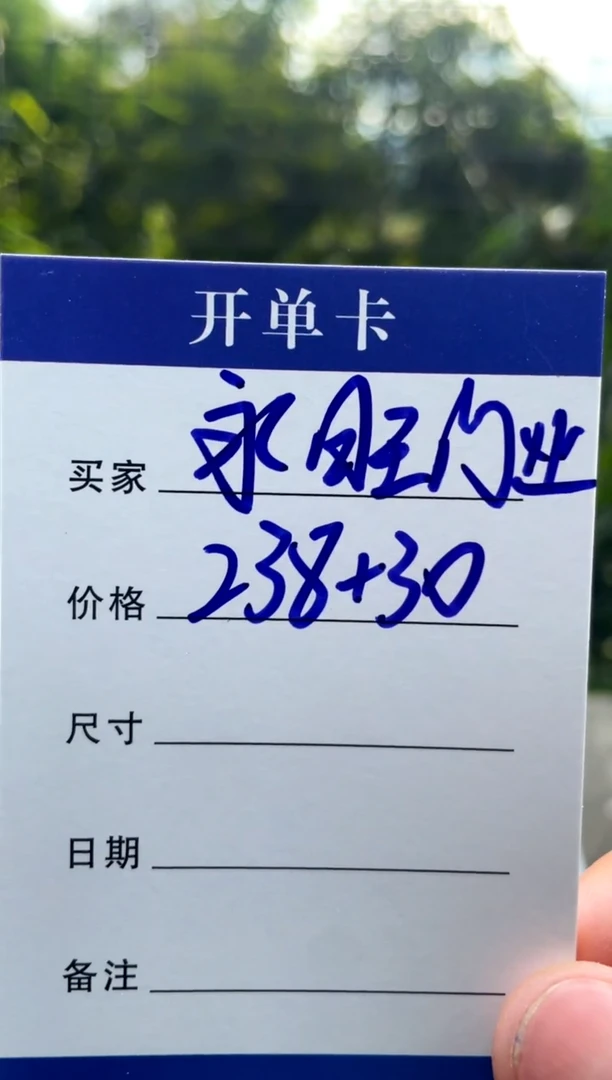 开单卡
买家 永旺门业
价格 238+30
尺寸
日期
备注